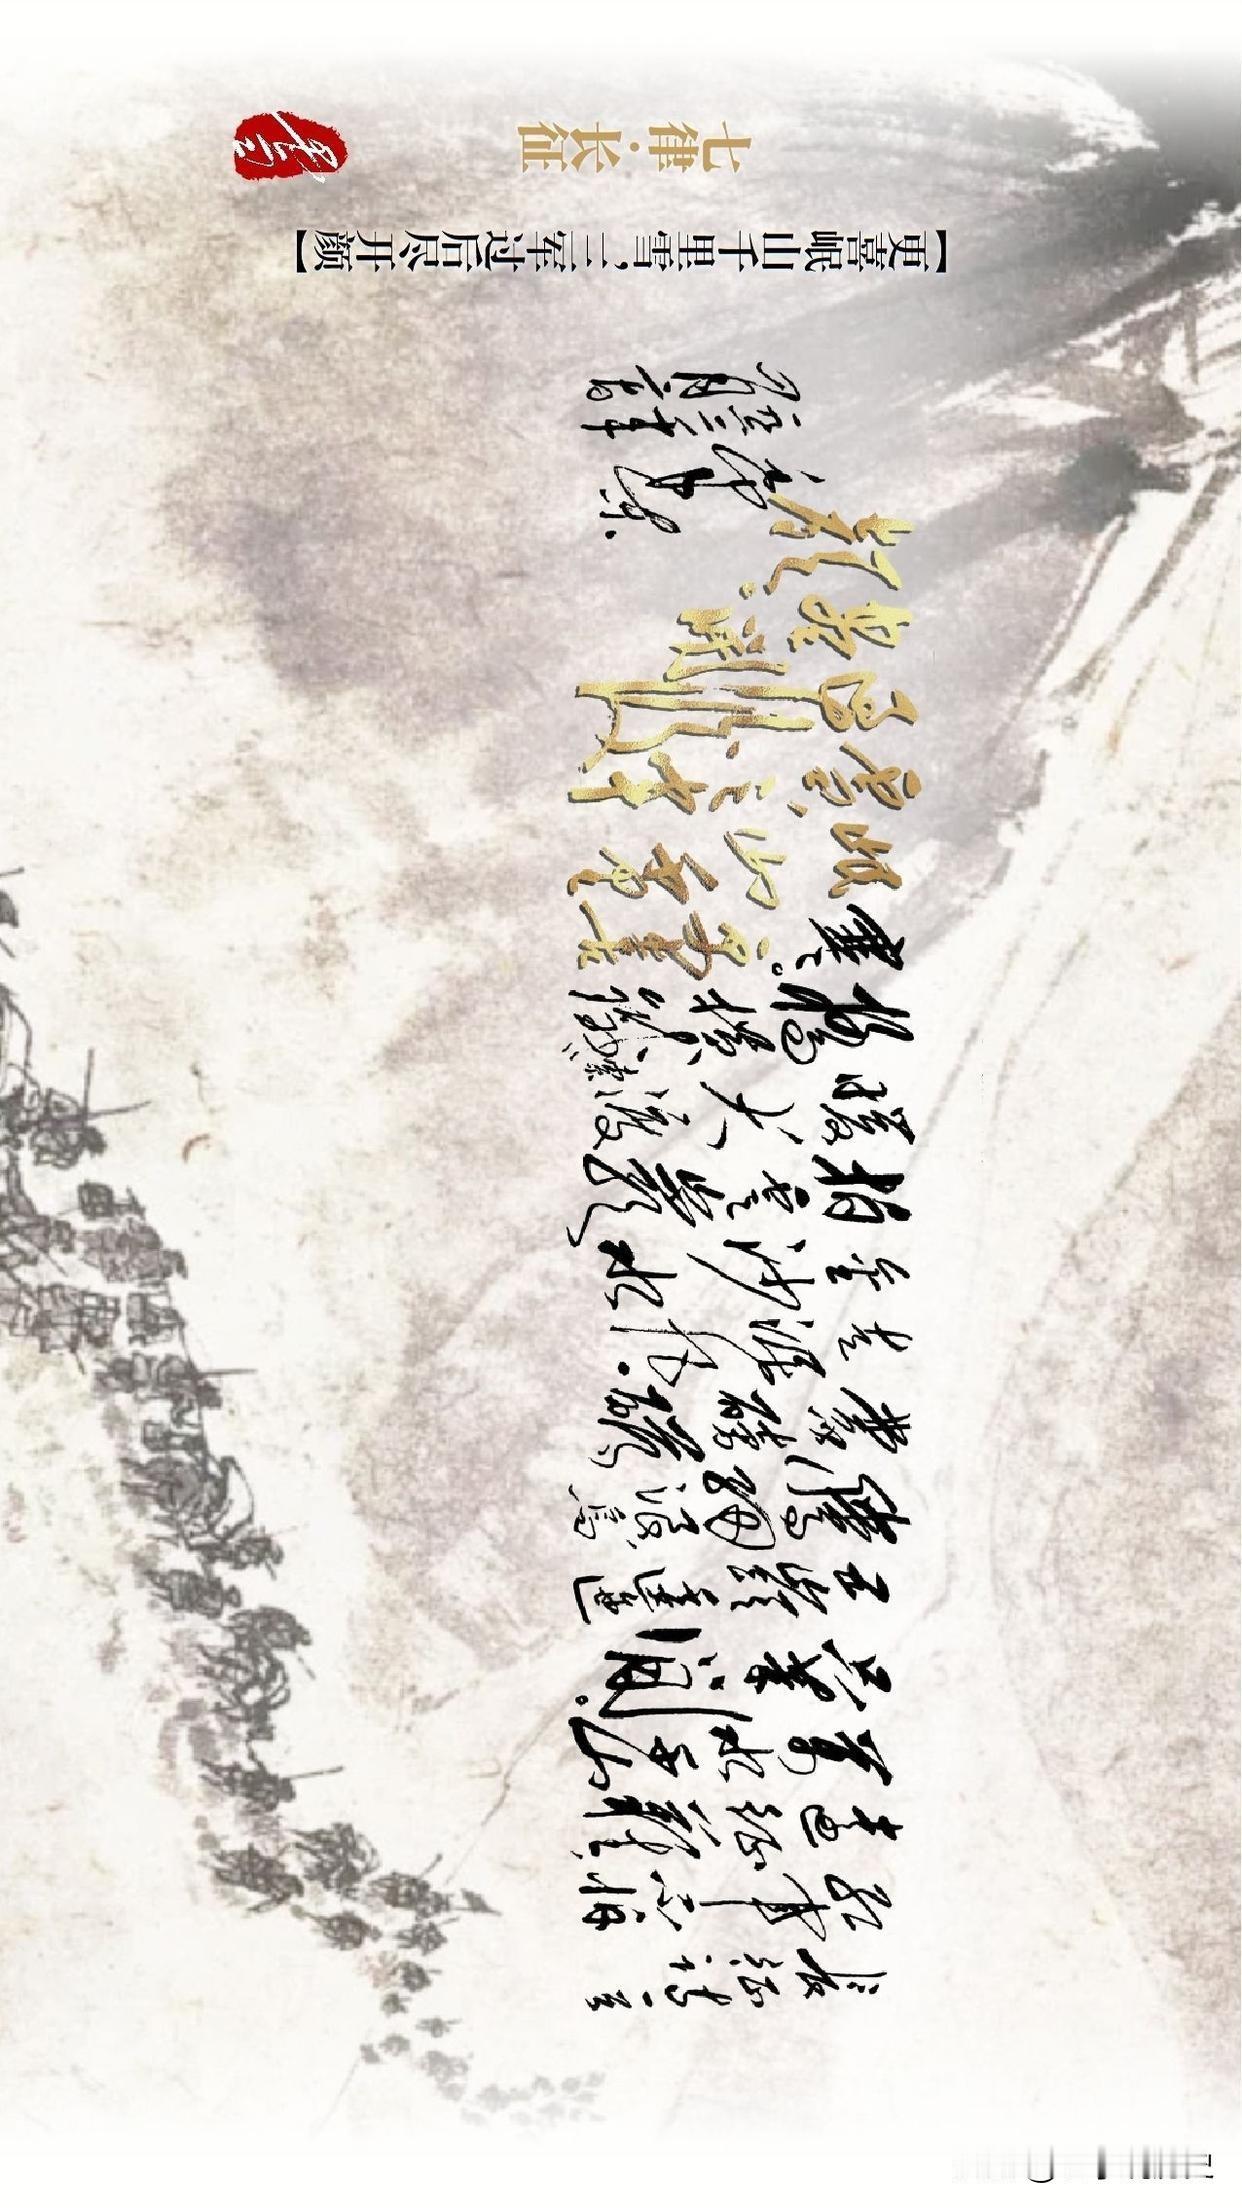 七律·长征
【更喜岷山千里雪，三军过后尽开颜】
长征诗一首
红军不怕
远征难
万水千山
只等闲
五岭逶迤
腾细浪乌
蒙磅礴
走泥丸
金沙水
拍云崖
暖大渡
桥横铁索
寒更喜
岷山千里
雪三军
过后
尽开
颜